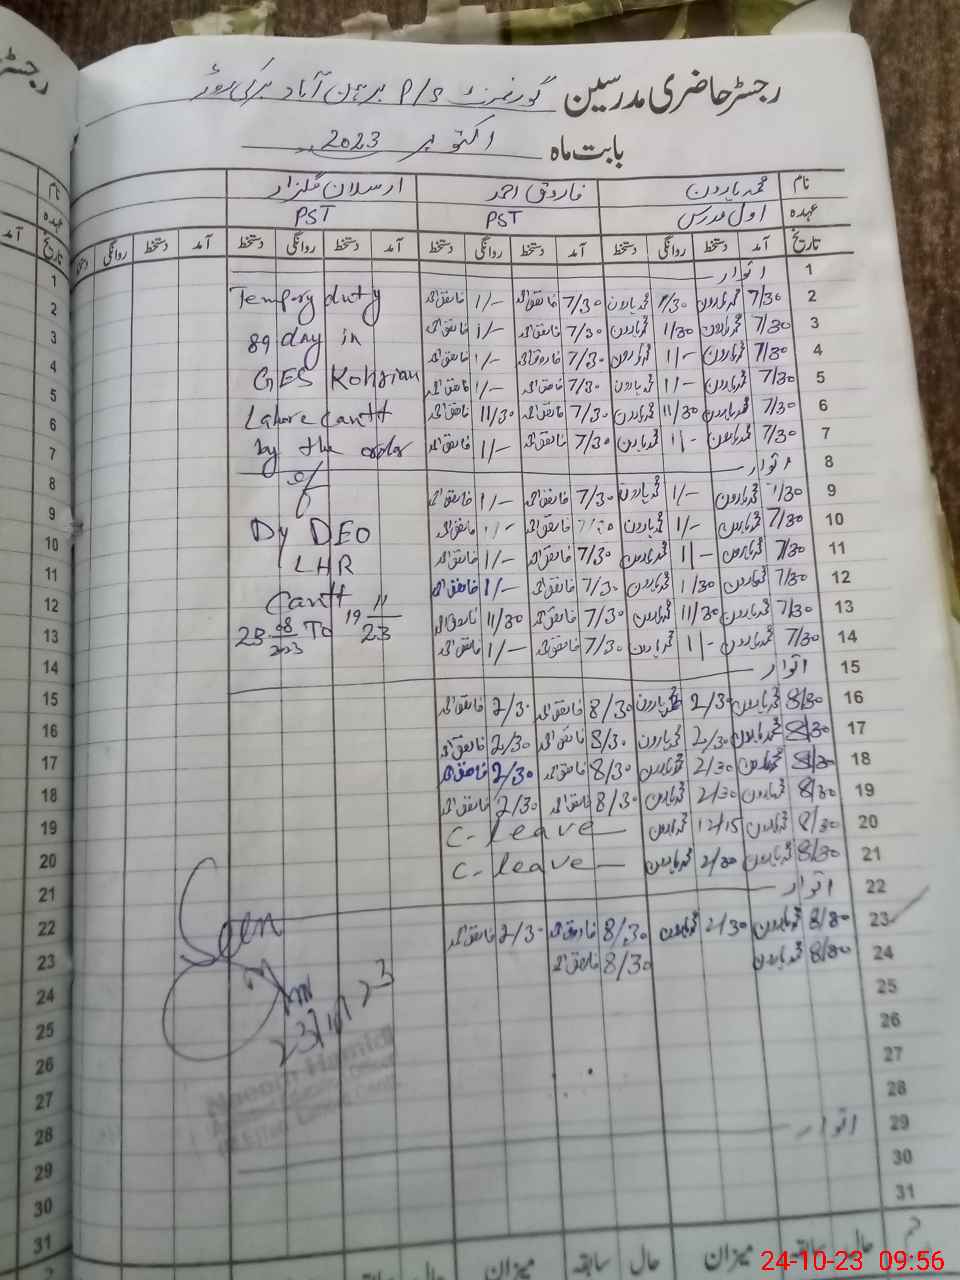 رجسٹر حاضری مدرسین گورنمنٹ P/S برہان آباد برکی روڈ
بابت ماہ اکتوبر 2023
نام محمد ہارون فاروق احمد ارسلان گلزار
عہدہ اول مدرس PST PST
تاریخ آمد دستخط روانگی دستخط آمد دستخط روانگی دستخط آمد دستخط روانگی دستخط آمد دستخط روانگی دستخط
1 اتوار
2 7/30 محمد ہارون 1/30 محمد ہارون 7/30 فاروق احمد 1/- فاروق احمد
3 7/30 محمد ہارون 1/30 محمد ہارون 7/30 فاروق احمد 1/- فاروق احمد
4 7/30 محمد ہارون 1/- محمد ہارون 7/30 فاروق احمد 1/- فاروق احمد
5 7/30 محمد ہارون 1/- محمد ہارون 7/30 فاروق احمد 1/- فاروق احمد
6 7/30 محمد ہارون 11/30 محمد ہارون 7/30 فاروق احمد 11/30 فاروق احمد
7 7/30 محمد ہارون 1/- محمد ہارون 7/30 فاروق احمد 1/- فاروق احمد
8 اتوار
9 7/30 محمد ہارون 1/- محمد ہارون 7/30 فاروق احمد 1/- فاروق احمد
10 7/30 محمد ہارون 1/- محمد ہارون 7/30 فاروق احمد 1/- فاروق احمد
11 7/30 محمد ہارون 1/- محمد ہارون 7/30 فاروق احمد 1/- فاروق احمد
12 7/30 محمد ہارون 1/30 محمد ہارون 7/30 فاروق احمد 1/- فاروق احمد
13 7/30 محمد ہارون 11/30 محمد ہارون 7/30 فاروق احمد 11/30 فاروق احمد
14 7/30 محمد ہارون 1/- محمد ہارون 7/30 فاروق احمد 1/- فاروق احمد
15 اتوار
16 8/30 محمد ہارون 2/30 محمد ہارون 8/30 فاروق احمد 2/30 فاروق احمد
17 8/30 محمد ہارون 2/30 محمد ہارون 8/30 فاروق احمد 2/30 فاروق احمد
18 8/30 محمد ہارون 2/30 محمد ہارون 8/30 فاروق احمد 2/30 فاروق احمد
19 8/30 محمد ہارون 2/30 محمد ہارون 8/30 فاروق احمد 2/30 فاروق احمد
20 8/30 محمد ہارون 12/15 محمد ہارون C-leave
21 8/30 محمد ہارون 2/30 محمد ہارون C-leave
22 اتوار
23 8/30 محمد ہارون 2/30 محمد ہارون 8/30 فاروق احمد 2/30 فاروق احمد
24 8/30 محمد ہارون 8/30 فاروق احمد
25
26
27
28
29 اتوار
30
31
Tempry duty
89 day in
GES Kohrian
Lahore Cantt
by the order
of
Dy DEO
LHR
Cantt
23 08/2023 To 19 11/23
Seen
23/10/23
سابقہ حال میزان سابقہ حال میزان
رجسٹر
نام
عہدہ
تاریخ آمد
1
2
3
4
5
6
7
8
9
10
11
12
13
14
15
16
17
18
19
20
21
22
23
24
25
26
27
28
29
30
31
24-10-23 09:56